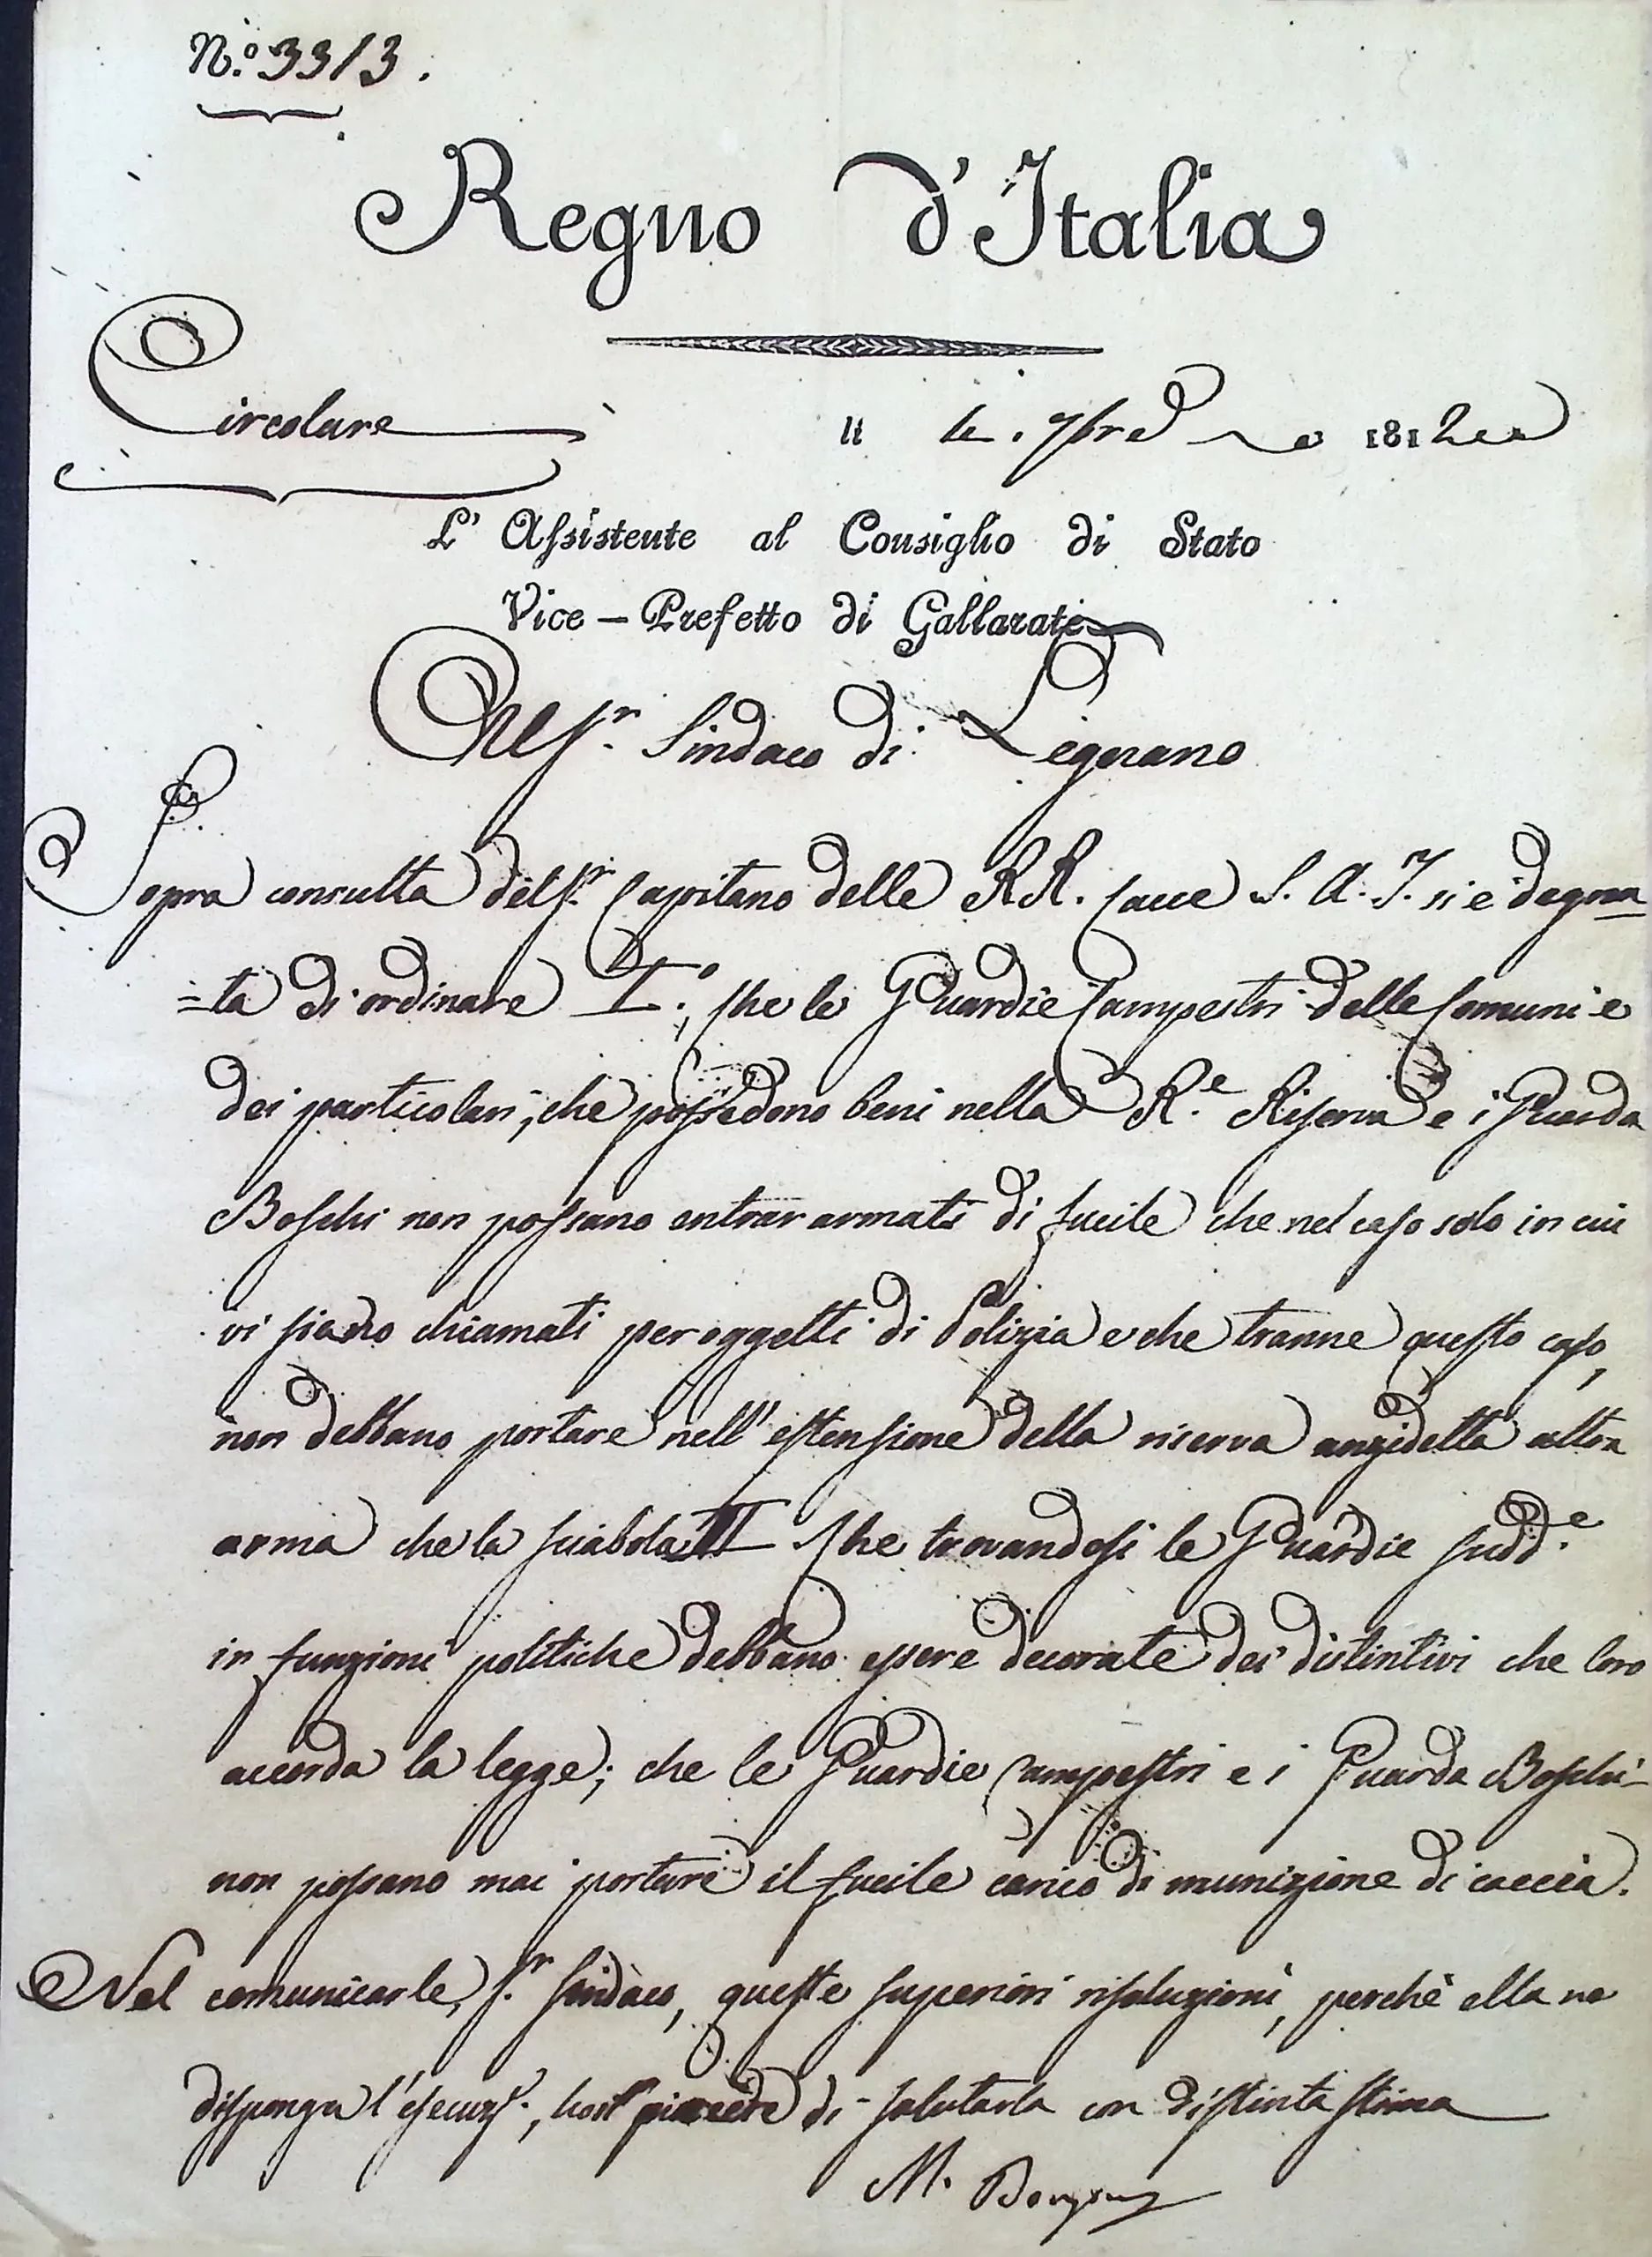 N.º 3313.
Regno d'Italia
Circolare
li 7bre 1812
L' Assistente al Consiglio di Stato
Vice – Prefetto di Gallarate
Al S.r Sindaco di Legnano
Sopra consulta del S.r Capitano delle RR. Cacce S. A. I. si è degna
=ta di ordinare I.º, che le Guardie Campestri delle Comuni e
dei particolari, che possedono beni nella R.e Riserva e i Guarda
Boschi non possano entrar armati di fucile che nel caso solo in cui
vi siano chiamati per oggetti di Polizia e che tranne questo caso,
non debbano portare nell'estensione della riserva anzidetta altra
arma che la sciabola II Che trovandosi le Guardie sudd.e
in funzioni politiche debbano essere decorate dei distintivi che loro
accorda la legge; che le Guardie Campestri e i Guarda Boschi
non possano mai portare il fucile carico di munizione di caccia.
Nel comunicarle, S.r Sindaco, queste superiori risoluzioni, perchè ella ne
disponga l'esecuz.e, ho il piacere di salutarla con distinta stima
M.